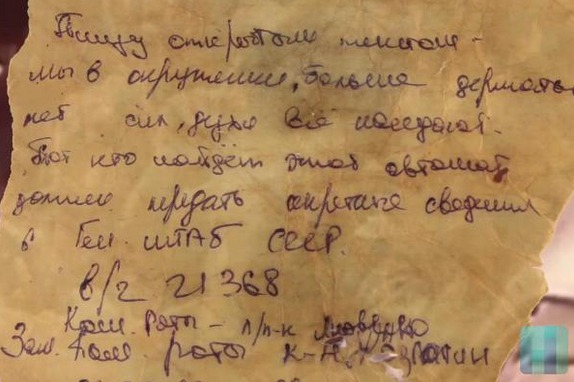 Пишу открытым текстом -
мы в окружении, больше держаться
нет сил, духи всё наседают.
Тот кто найдёт этот автомат,
должен передать секретные сведения
в Ген. штаб СССР.
в/ч 21368
Ком. Роты - п/п-к
Зам. Ком. роты к-н.